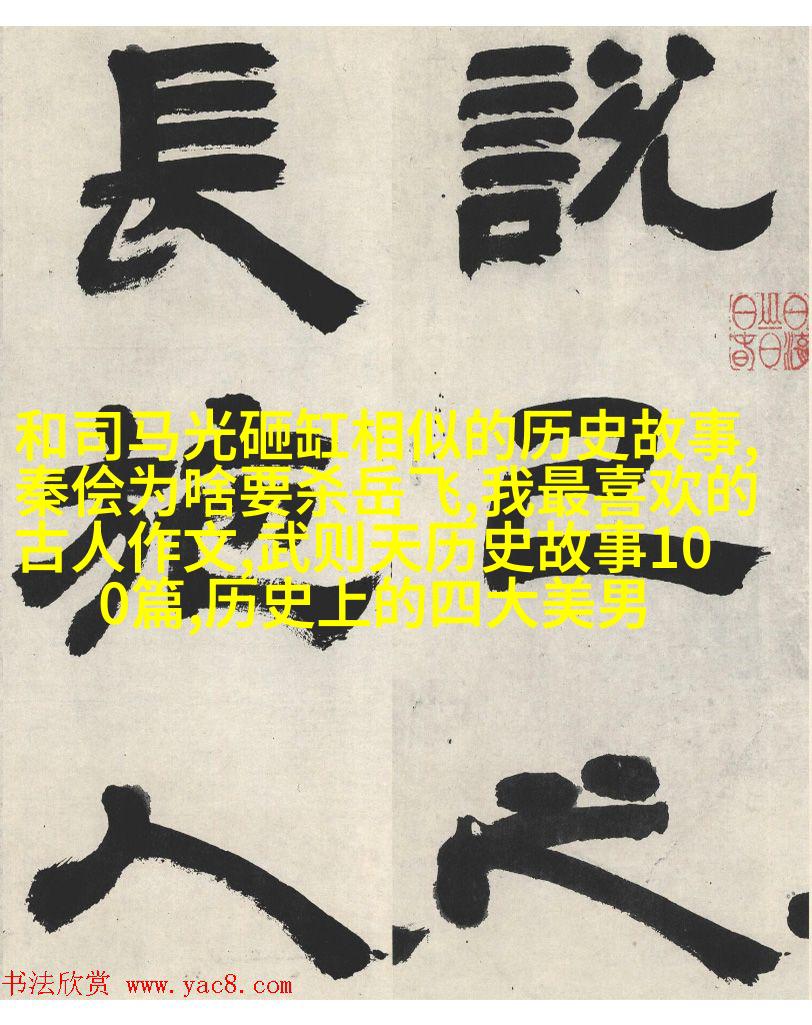 說己之
長施人
和司马光砸缸相似的历史故事,
秦侩为啥要杀岳飞,我最喜欢的
古人作文,武则天历史故事10
0篇,历史上的四大美男
书法欣赏 www.yac8.com